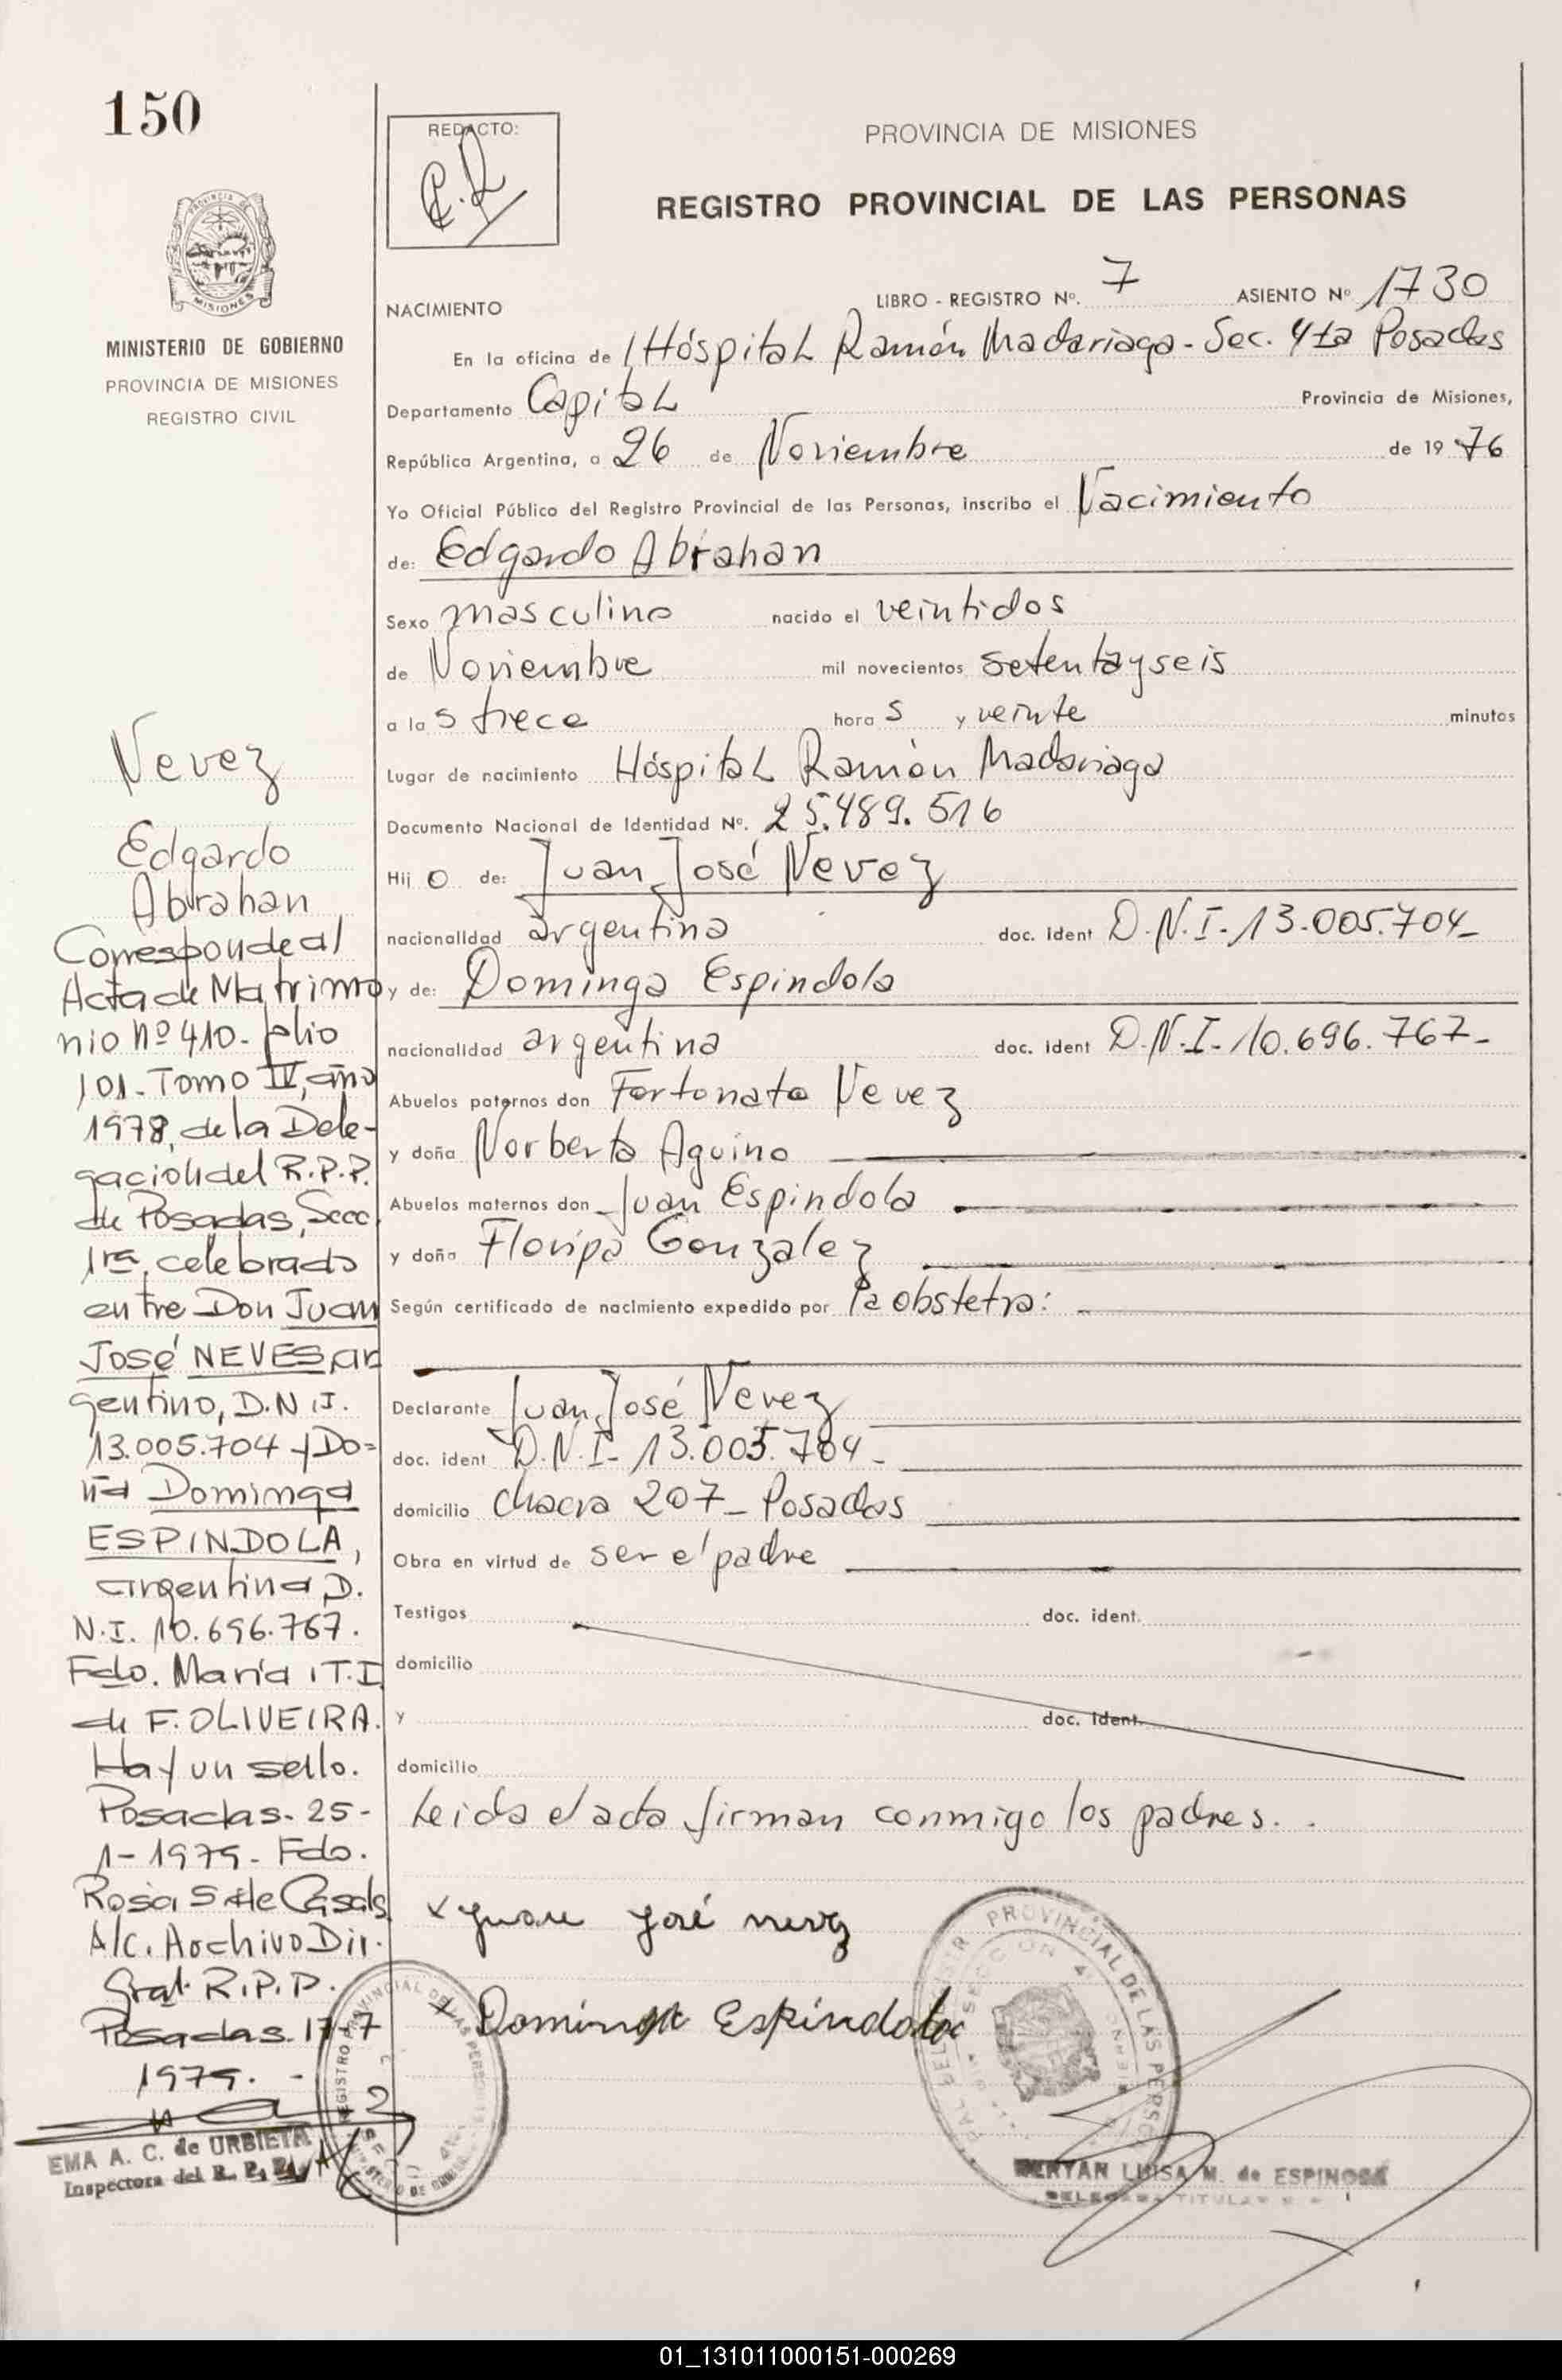 150
MINISTERIO DE GOBIERNO
PROVINCIA DE MISIONES
REGISTRO CIVIL
REDACTO:
PROVINCIA DE MISIONES
REGISTRO PROVINCIAL DE LAS PERSONAS
NACIMIENTO LIBRO - REGISTRO Nº. 7 ASIENTO Nº 1730
En la oficina de Hóspital Ramón Madariaga - Sec. 4ta Posadas
Departamento Capital Provincia de Misiones,
República Argentina, a 26 de Noviembre de 1976
Yo Oficial Público del Registro Provincial de las Personas, inscribo el Nacimiento
de: Edgardo Abrahan
Sexo masculino nacido el veintidos
de Noviembre mil novecientos setentayseis
a las trece horas y veinte minutos
Lugar de nacimiento Hóspital Ramón Madariaga
Documento Nacional de Identidad Nº. 25.489.516
Hijo de: Juan José Nevez
nacionalidad argentina doc. ident D.N.I- 13.005.704-
y de: Dominga Espindola
nacionalidad argentina doc. ident D.N.I- 10.696.767-
Abuelos paternos don Fortonato Nevez
y doña Norberta Aquino
Abuelos maternos don Juan Espindola
y doña Floripa Gonzalez
Según certificado de nacimiento expedido por la obstetra:
Declarante Juan José Nevez
doc. ident D.N.I- 13.005.704-
domicilio chacra 207- Posadas
Obra en virtud de ser el padre
Testigos doc. ident.
domicilio
y doc. ident.
domicilio
Leida el acta firman conmigo los padres.
x Juan José nevez
x Dominga Espindola
BERYAN LUISA M. de ESPINOSA
Nevez
Edgardo
Abrahan
Corresponde al
Acta de Matrimo
nio nº 410- folio
101- Tomo IV, año
1978, de la Dele-
gación del R.P.P.
de Posadas, Secc
1ra, celebrado
entre Don Juan
José NEVES, ar
gentino, D.N.I.
13.005.704 y Do=
ña Dominga
ESPINDOLA,
argentina D.
N.I. 10.696.767.
Fdo. María T.I
de F. OLIVEIRA.
Hay un sello.
Posadas- 25-
1-1979- Fdo.
Rosa S de Casals
A/c. Archivo Dir.
Gral. R.P.P.
Posadas 17-7
1979. -
EMA A. C. de URBIETA
Inspectora del R. P. P.
REGISTRO PROVINCIAL DE LAS PERSONAS
01_131011000151-000269